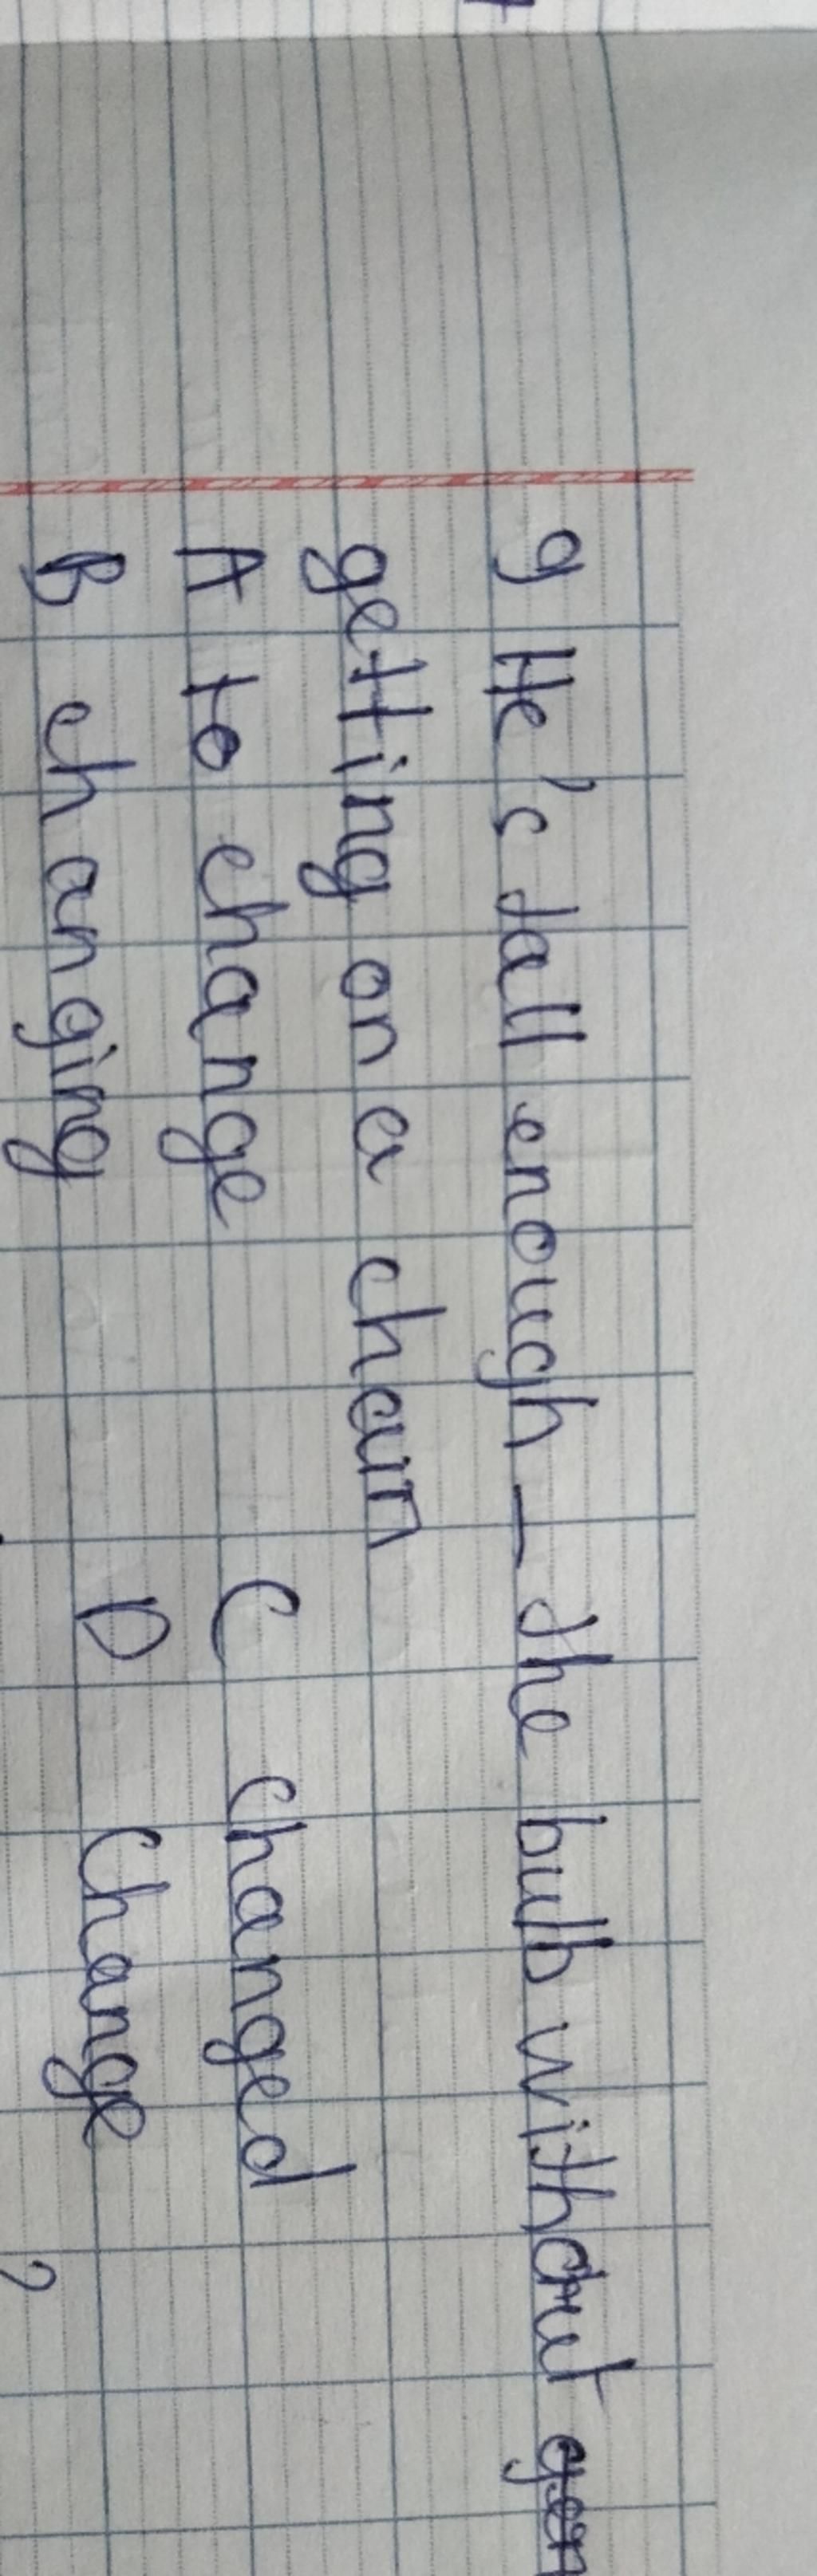 9 He's tall enough _ the bulb without
getting on a chair
A to change C changed
B changing D change